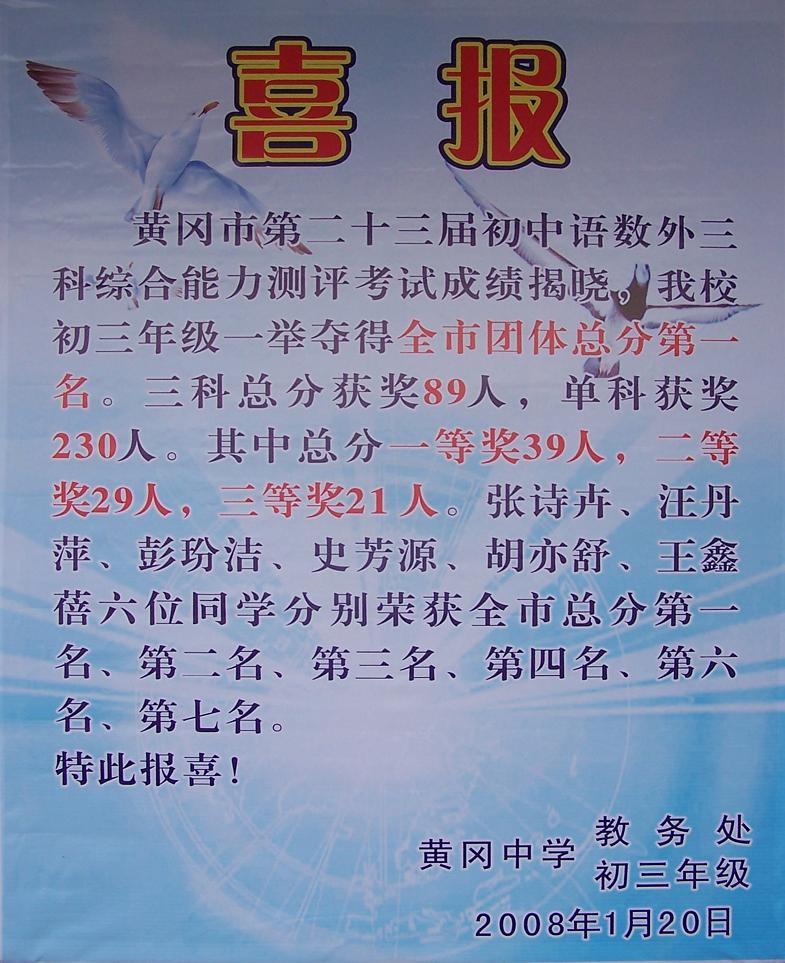 喜报
黄冈市第二十三届初中语数外三
科综合能力测评考试成绩揭晓，我校
初三年级一举夺得全市团体总分第一
名。三科总分获奖89人，单科获奖
230人。其中总分一等奖39人，二等
奖29人，三等奖21人。张诗卉、汪丹
萍、彭玢洁、史芳源、胡亦舒、王鑫
蓓六位同学分别荣获全市总分第一
名、第二名、第三名、第四名、第六
名、第七名。
特此报喜！
黄冈中学 教务处
初三年级
2008年1月20日